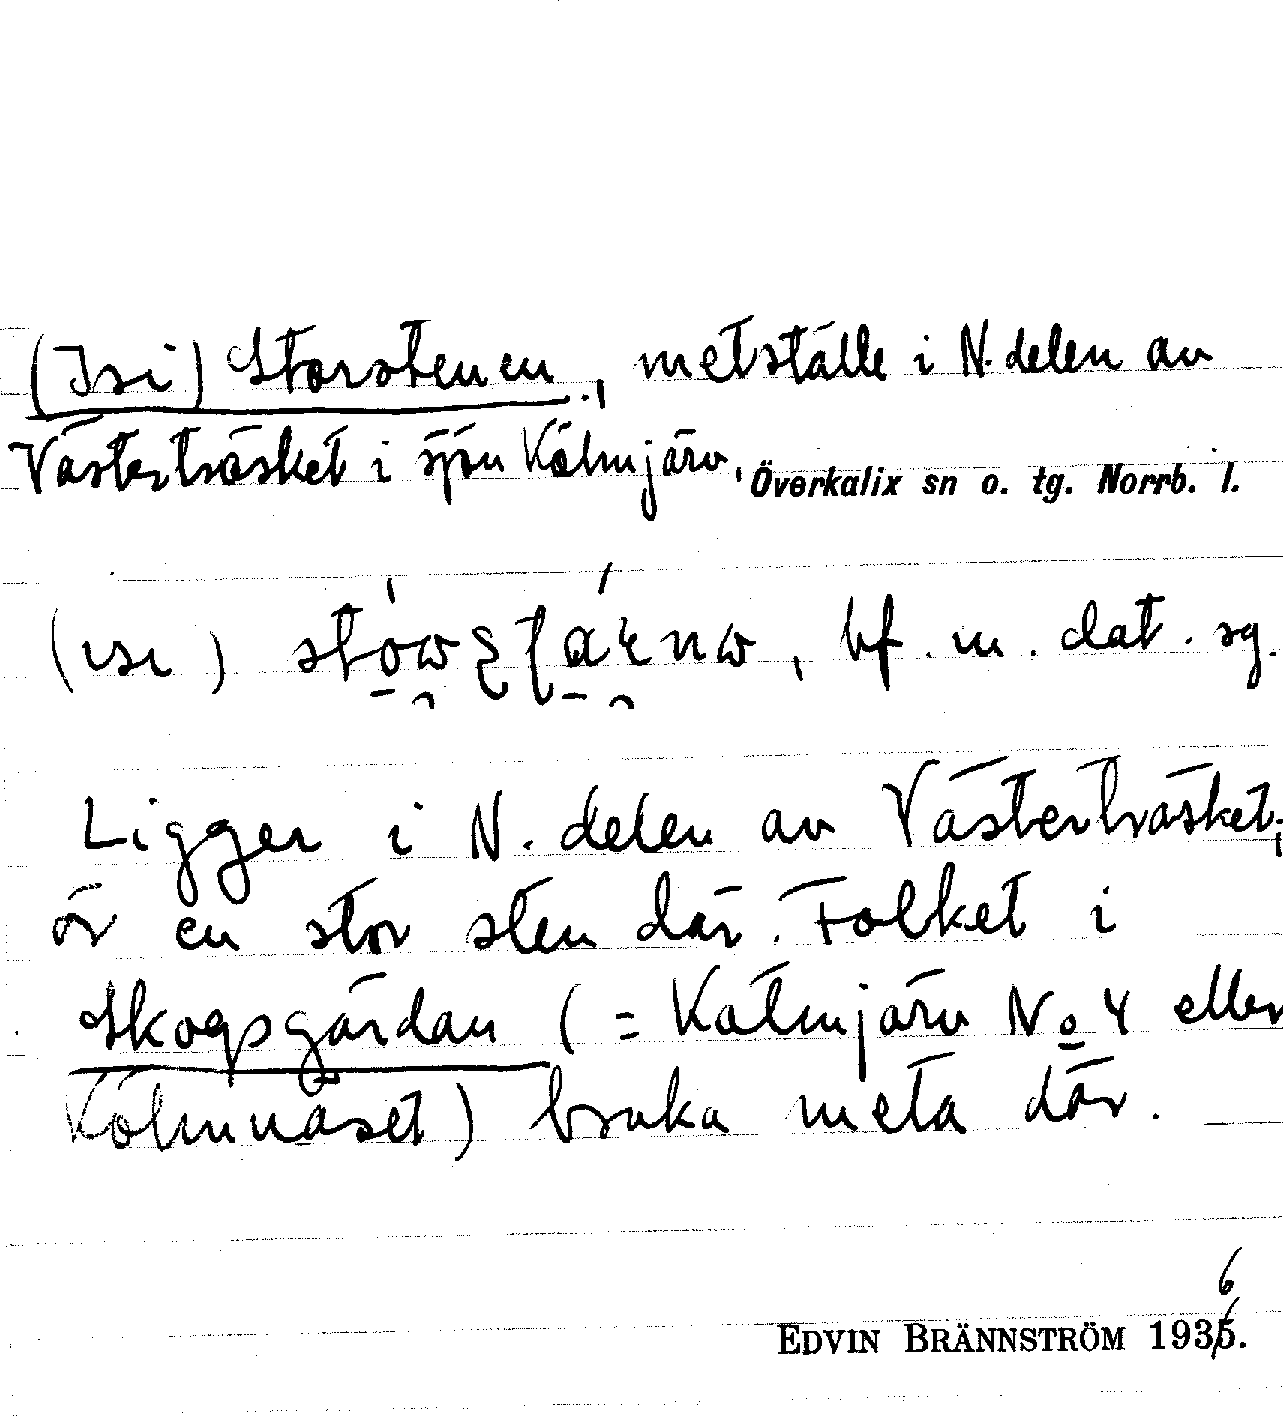 (Isi) Storstenen., metställe i N. delen av
Västerträsket i sjön Kälmjärv, Överkalix sn o. tg. Norrb. l.
(ısı) , bf. m. dat. sg.
Ligger i N. delen av Västerträsket;
är en stor sten där. Folket i
Skogsgårdan (= Kälmjärv No 4 eller
Kälmnäset) bruka meta där.
6
EDVIN BRÄNNSTRÖM 1935.